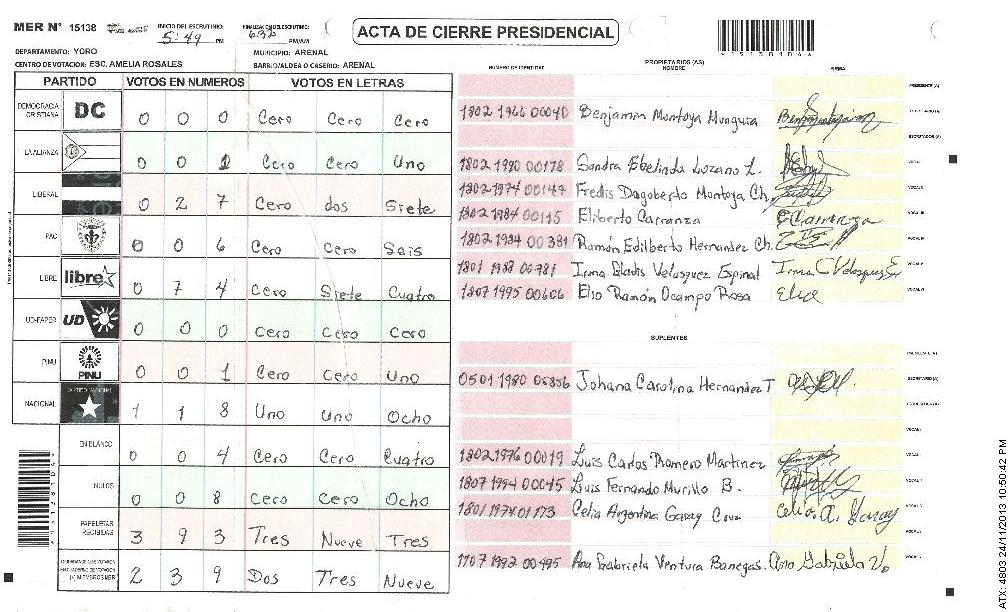 MER N° 15138
INICIO DEL ESCRUTINIO: 5:49 PM
FINALIZACION DEL ESCRUTINIO: 6:32 PM/AM
ACTA DE CIERRE PRESIDENCIAL
DEPARTAMENTO: YORO
MUNICIPIO: ARENAL
CENTRO DE VOTACION: ESC. AMELIA ROSALES
BARRIO/ALDEA O CASERIO: ARENAL
PARTIDO VOTOS EN NUMEROS VOTOS EN LETRAS
DEMOCRACIA CRISTIANA DC 0 0 0 Cero Cero Cero
LA ALIANZA 0 0 1 Cero Cero Uno
LIBERAL 0 2 7 Cero dos Siete
PAC 0 0 6 Cero Cero Seis
LIBRE libre 0 7 4 Cero Siete Cuatro
UD-FAPER UD 0 0 0 Cero Cero Cero
PINU PINU 0 0 1 Cero Cero Uno
NACIONAL PARTIDO NACIONAL 1 1 8 Uno Uno Ocho
EN BLANCO 0 0 4 Cero Cero Cuatro
NULOS 0 0 8 Cero Cero Ocho
PAPELETAS RECIBIDAS 3 9 3 Tres Nueve Tres
2 3 9 Dos Tres Nueve
NUMERO DE IDENTIDAD PROPIETARIOS (AS) NOMBRE FIRMA
PRESIDENTE (A)
1802 1966 00040 Benjamin Montoya Munguia SECRETARIO (A)
ESCRUTADOR (A)
1802 1980 00178 Sandra Ebelinda Lozano L. VOCAL I
1802 1974 00147 Fredis Dagoberto Montoya Ch. VOCAL II
1802 1984 00115 Eliberto Carranza ECarranza VOCAL III
1802 1994 00381 Ramón Edilberto Hernandez Ch. VOCAL IV
1801 1988 00781 Irma Gladis Velasquez Espinal VOCAL V
1807 1995 00606 Elio Ramón Ocampo Rosa Elio VOCAL VI
SUPLENTES
PRESIDENTE (A)
0501 1980 05856 Johana Carolina Hernandez T SECRETARIO (A)
ESCRUTADOR (A)
VOCAL I
1802 1976 00019 Luis Carlos Romero Martinez
1807 1994 00045 Luis Fernando Murillo B.
1801 1974 01173 Celia Argentina Garay Cruz Celia A. Garay
1707 1992 00495 Ana Gabriela Ventura Banegas. Ana Gabriela V.
ATX: 4803 24/11/2013 10:50:42 PM